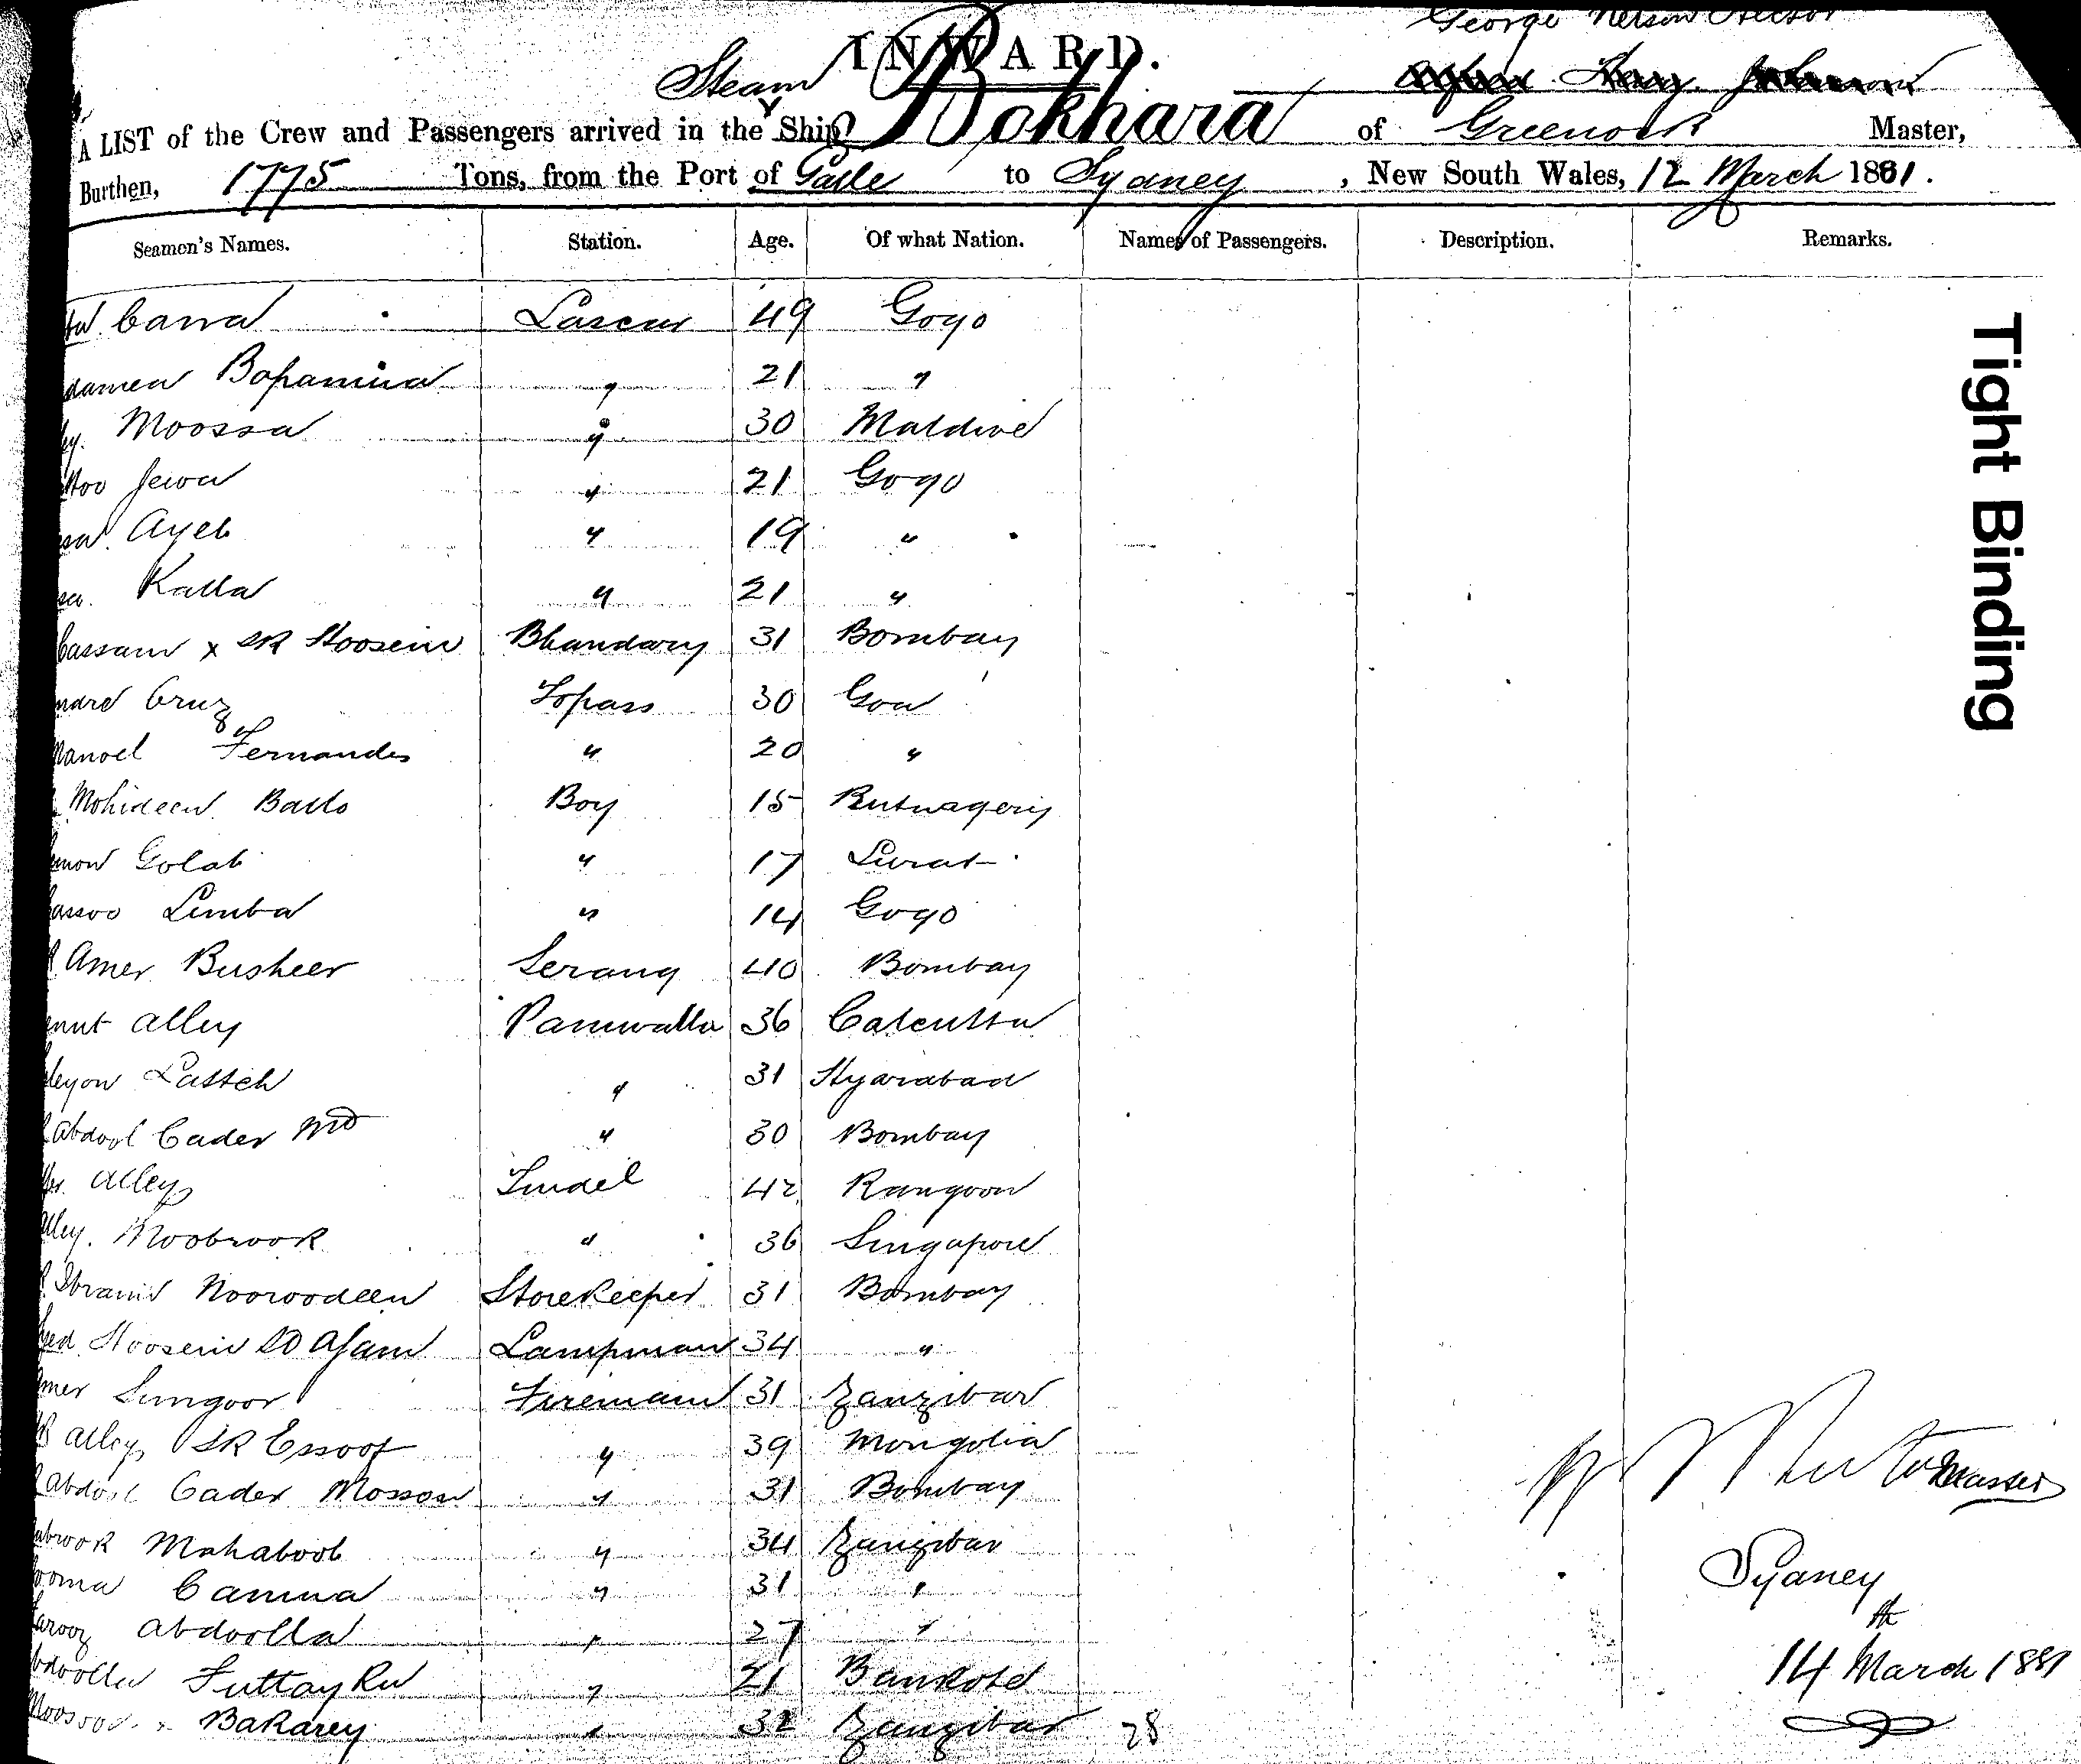 George Nelson Hector
INWARD.
Steam
A LIST of the Crew and Passengers arrived in the Ship Bokhara of Greenock Master,
Burthen, 1775 Tons, from the Port of Galle to Sydney, New South Wales, 12 March 1881.
Seamen's Names. Station. Age. Of what Nation. Names of Passengers. Description. Remarks.
Cassa Lascar 49 Gogo
Bopamina " 21 "
Moossa " 30 Maldive
Jewa " 21 Gogo
Ayeb " 19 "
Kalla " 21 "
Cassam x SK Hoosein Bhandary 31 Bombay
Cruz Topass 30 Goa
Manoel Fernandes " 20 "
Mohideen Ballo Boy 15 Rutnagery
Golab " 17 Surat
Limba " 14 Gogo
Amer Busheer Serang 40 Bombay
Alley Paniwalla 36 Calcutta
Lutteh " 31 Hyarabad
Abdool Cader Md " 30 Bombay
Alley Tindel 42 Rangoon
Alley. Moobrook " 36 Singapore
Ibraim Nooroodeen Storekeeper 31 Bombay
Hoosein SD Ajam Lampman 34 "
Sungoor Fireman 31 Zanzibar
Alley SK Essoof " 39 Mongolia
Abdool Cader Mossom " 31 Bombay
Mahaboob " 34 Zanzibar
Camna " 31 "
Abdoolla " 27 "
Futtay Ku " 21 Bankote
Moosoo x Bakarey " 32 Zanzibar 28
Tight Binding
Master
Sydney
14th March 1881